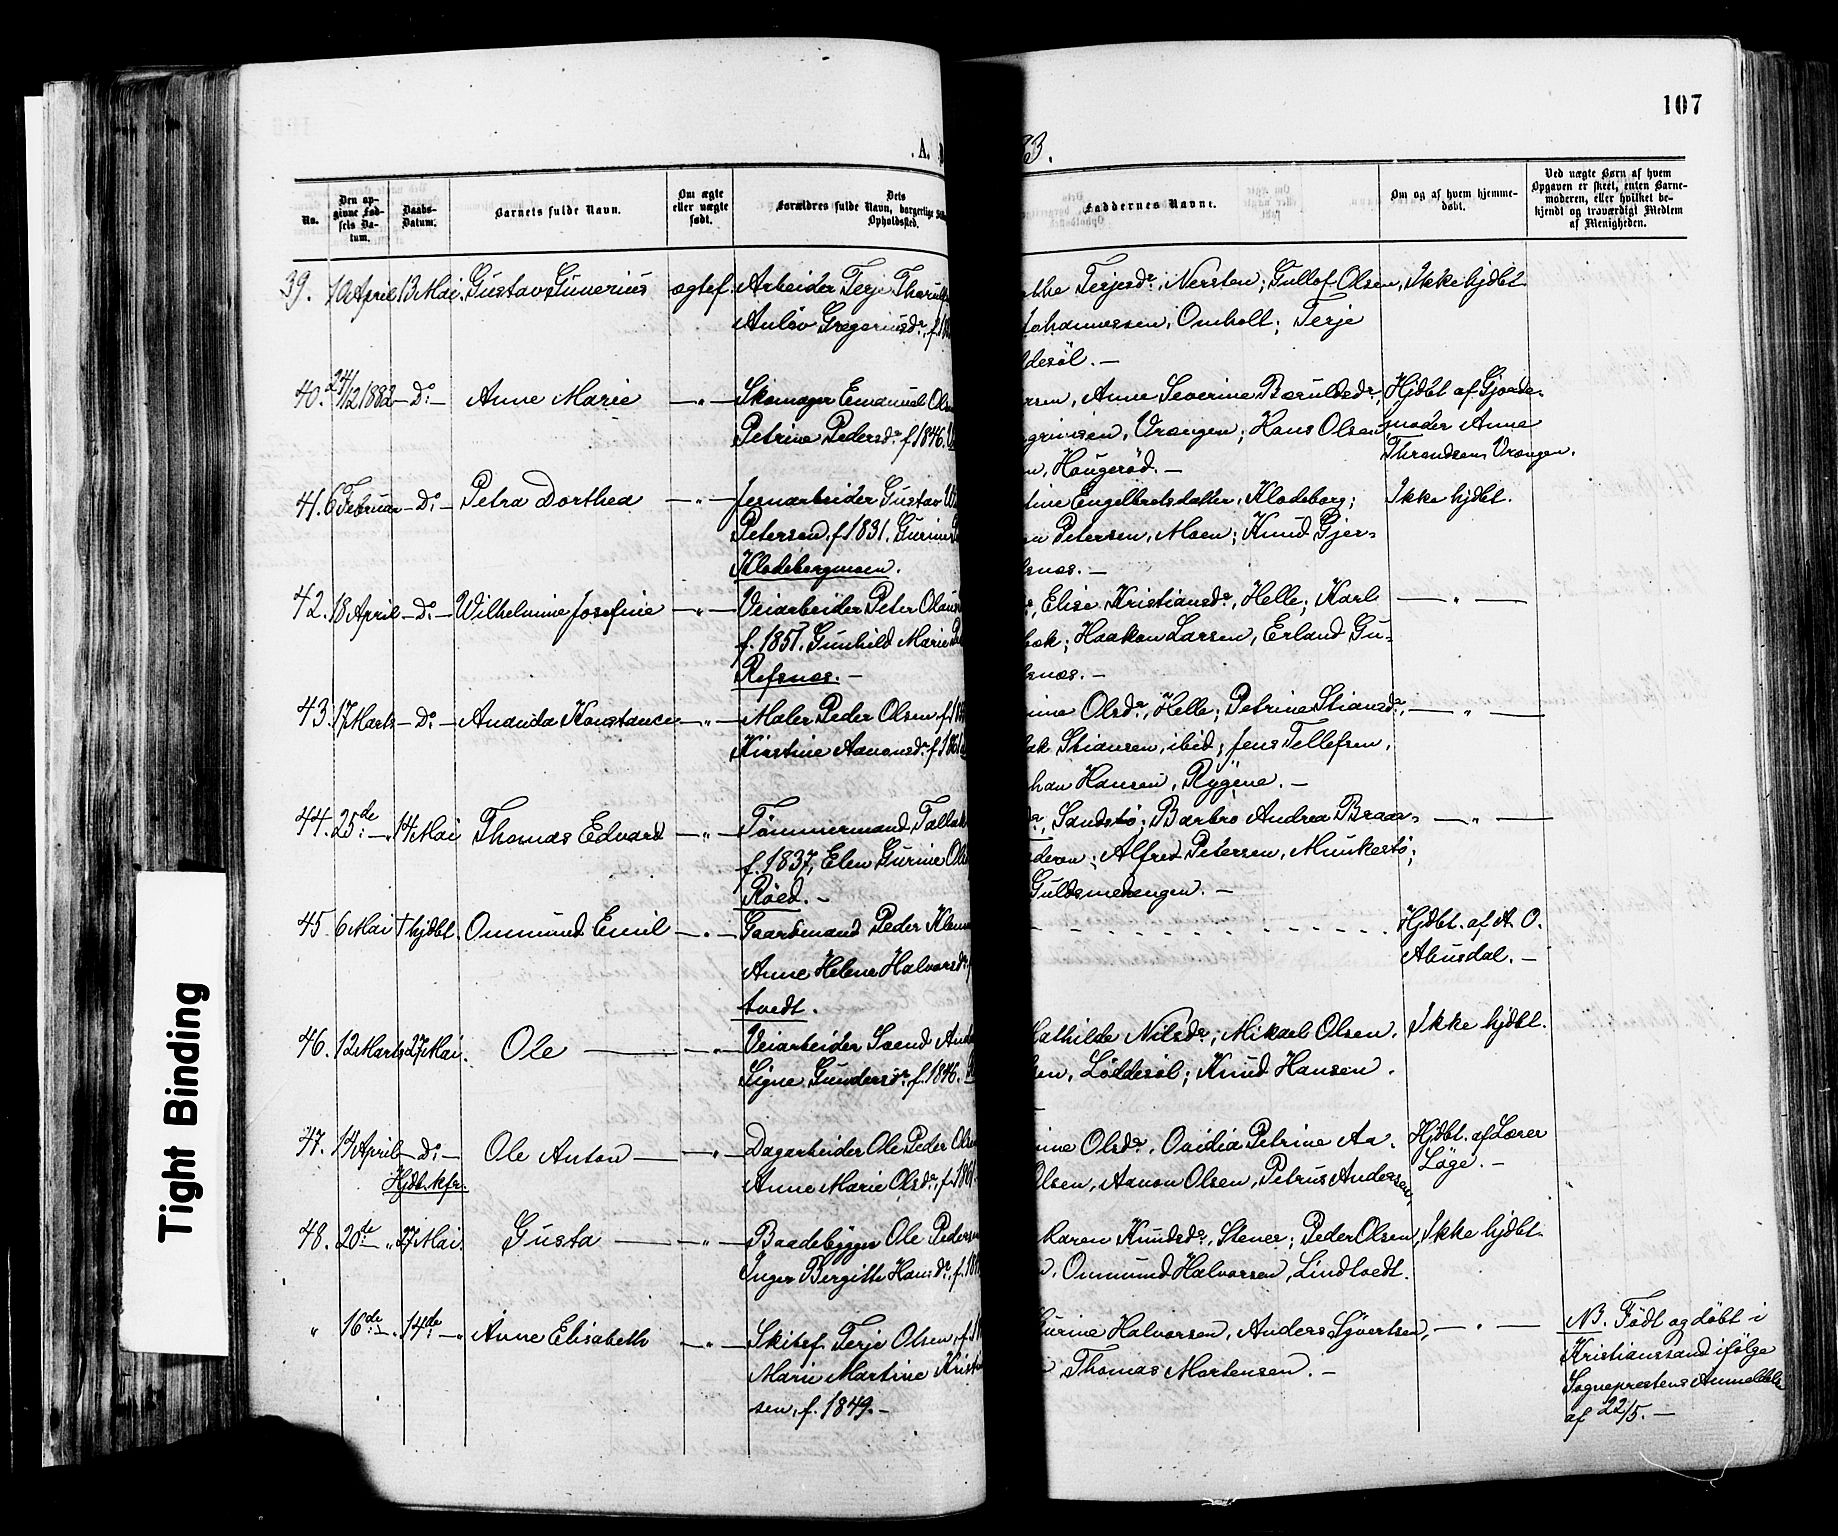 107
.A.
83.
No.
Den op-
givne Fød-
sels Da-
tum.
Daabs-
Datum.
Barnets fulde Navn.
Om ægte
eller uægte
født.
Dets
Forældres fulde Navn, borgerlige
Opholdssted.
Faddernes Navne.
Om og af hvem hjemme-
døbt.
Ved uægte Børn af hvem
Opgaven er skeet, enten Barne-
moderen, eller hvilket be-
kjendt og troværdigt Medlem
af Menigheden.
39. 10 April 13 Mai. Gustav Gunerius ægtef. Arbeider Terje Tharald
Anlav Gregoriusdr, f. 18
Terjesdr. Nersten; Gullof Olsen, Ikke hjdbt.
Johannessen, Omholt; Terje
desøl. —
40. 24/12 1882 — Do — Anne Marie — " — Skomager Emanuel Olsen
Petrine Pedersdr f. 1846.
rsen, Anne Severine Baruldsdr, Hjdbt af Gjorde-
grimsen, Vrangen; Hans Olsen moder Anne
n, Haugerød. — Throndsen Vrangen.
41. 6 Februar — Do — Petra Dorthea — " — Jernarbeider Gustav
Petersen, f. 1831. Gurine
Klodeborgmoen.
tine Engelbretsdatter, Klodeborg; Ikke hjdbt.
en Petersen, Moen; Knud Gjer-
snes. —
42. 18 April — Do — Wilhelmine Josefine — " — Veiarbeider Peter Olaus
f. 1857. Gunhild Marie
Refsnæs. —
Elise Kristiansdr, Helle; Karl — " —
bak; Haakon Larsen, Erland Gu-
snæs. —
43. 17 Marts — Do — Ananda Konstance — " — Maler Peder Olsen, f. 18
Kirstine Aanonsdr f. 1861
ine Olsdr, Helle; Petrine Stiansdr, — " —
ak Stiansen, ibid; Jens Tellefsen,
han Hansen, Rygene. —
44. 25de — " 14 Mai Thomas Edvard — " — Tømmermand Tallak
f. 1837, Elen Gurine Ols
Røed. —
Sandstø; Barbro Andrea Braa- — " —
deren; Alfred Petersen, Munkestø;
Guldsmedengen. —
45. 6 Mai † hjdbt. Ommund Emil — " — Gaardmand Peder Klem
Anne Helene Halvorsdr,
tvedt.
Hjdbt. af A. O.
Abusdal. —
46. 12 Marts 27 Mai. Ole — " — Veiarbeider Svend And
Signe Gundersdr. f. 1846.
Mathilde Nilsdr; Mikael Olsen, Ikke hjdbt.
sen, Løddesøl; Knud Hansen.
47. 14 April — Do — Ole Anton — " — Dagarbeider Ole Peder Olsen
Hjdbt. kfr.
Anne Marie Olsdr, f. 1861.
ine Olsdr, Ovidia Petrine Aa- Hjdbt. af Lærer
Olsen, Aanon Olsen, Petrus Andersen, Løge. —
48. 20de — " 27 Mai. Gusta — " — Baadebygger Ole Pedersen
Inger Bergitte Hansdr, f. 18
Karen Knudsdr, Stener; Peder Olsen, Ikke hjdbt.
Ommund Halvorsen, Lindtvedt.
" 16de — " 14de — " Anne Elisabeth — " — Skibsf. Terje Olsen, f. 18
Marie Martine Kristi
sen, f. 1849. —
Gurine Halvorsen, Anders Syvertsen, — " —
Thomas Mortensen. —
NB. Født og døbt i
Kristianssand ifølge
Sogneprestens Anmeldelse
af 22/5. —
Tight Binding